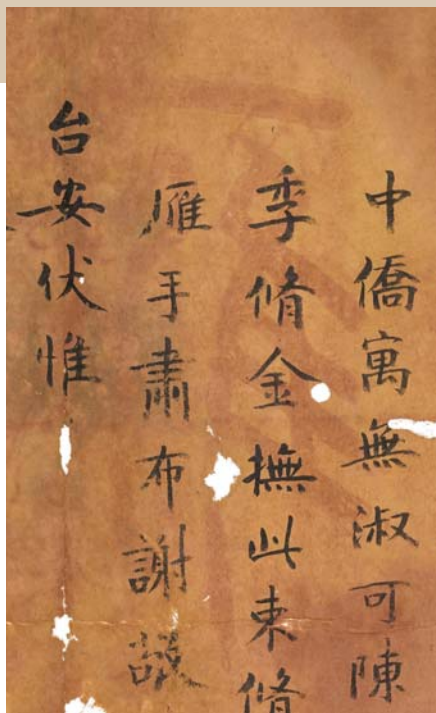 中僑寓無淑可陳
季脩金撫此束脩
雁手肅布謝
台安伏惟